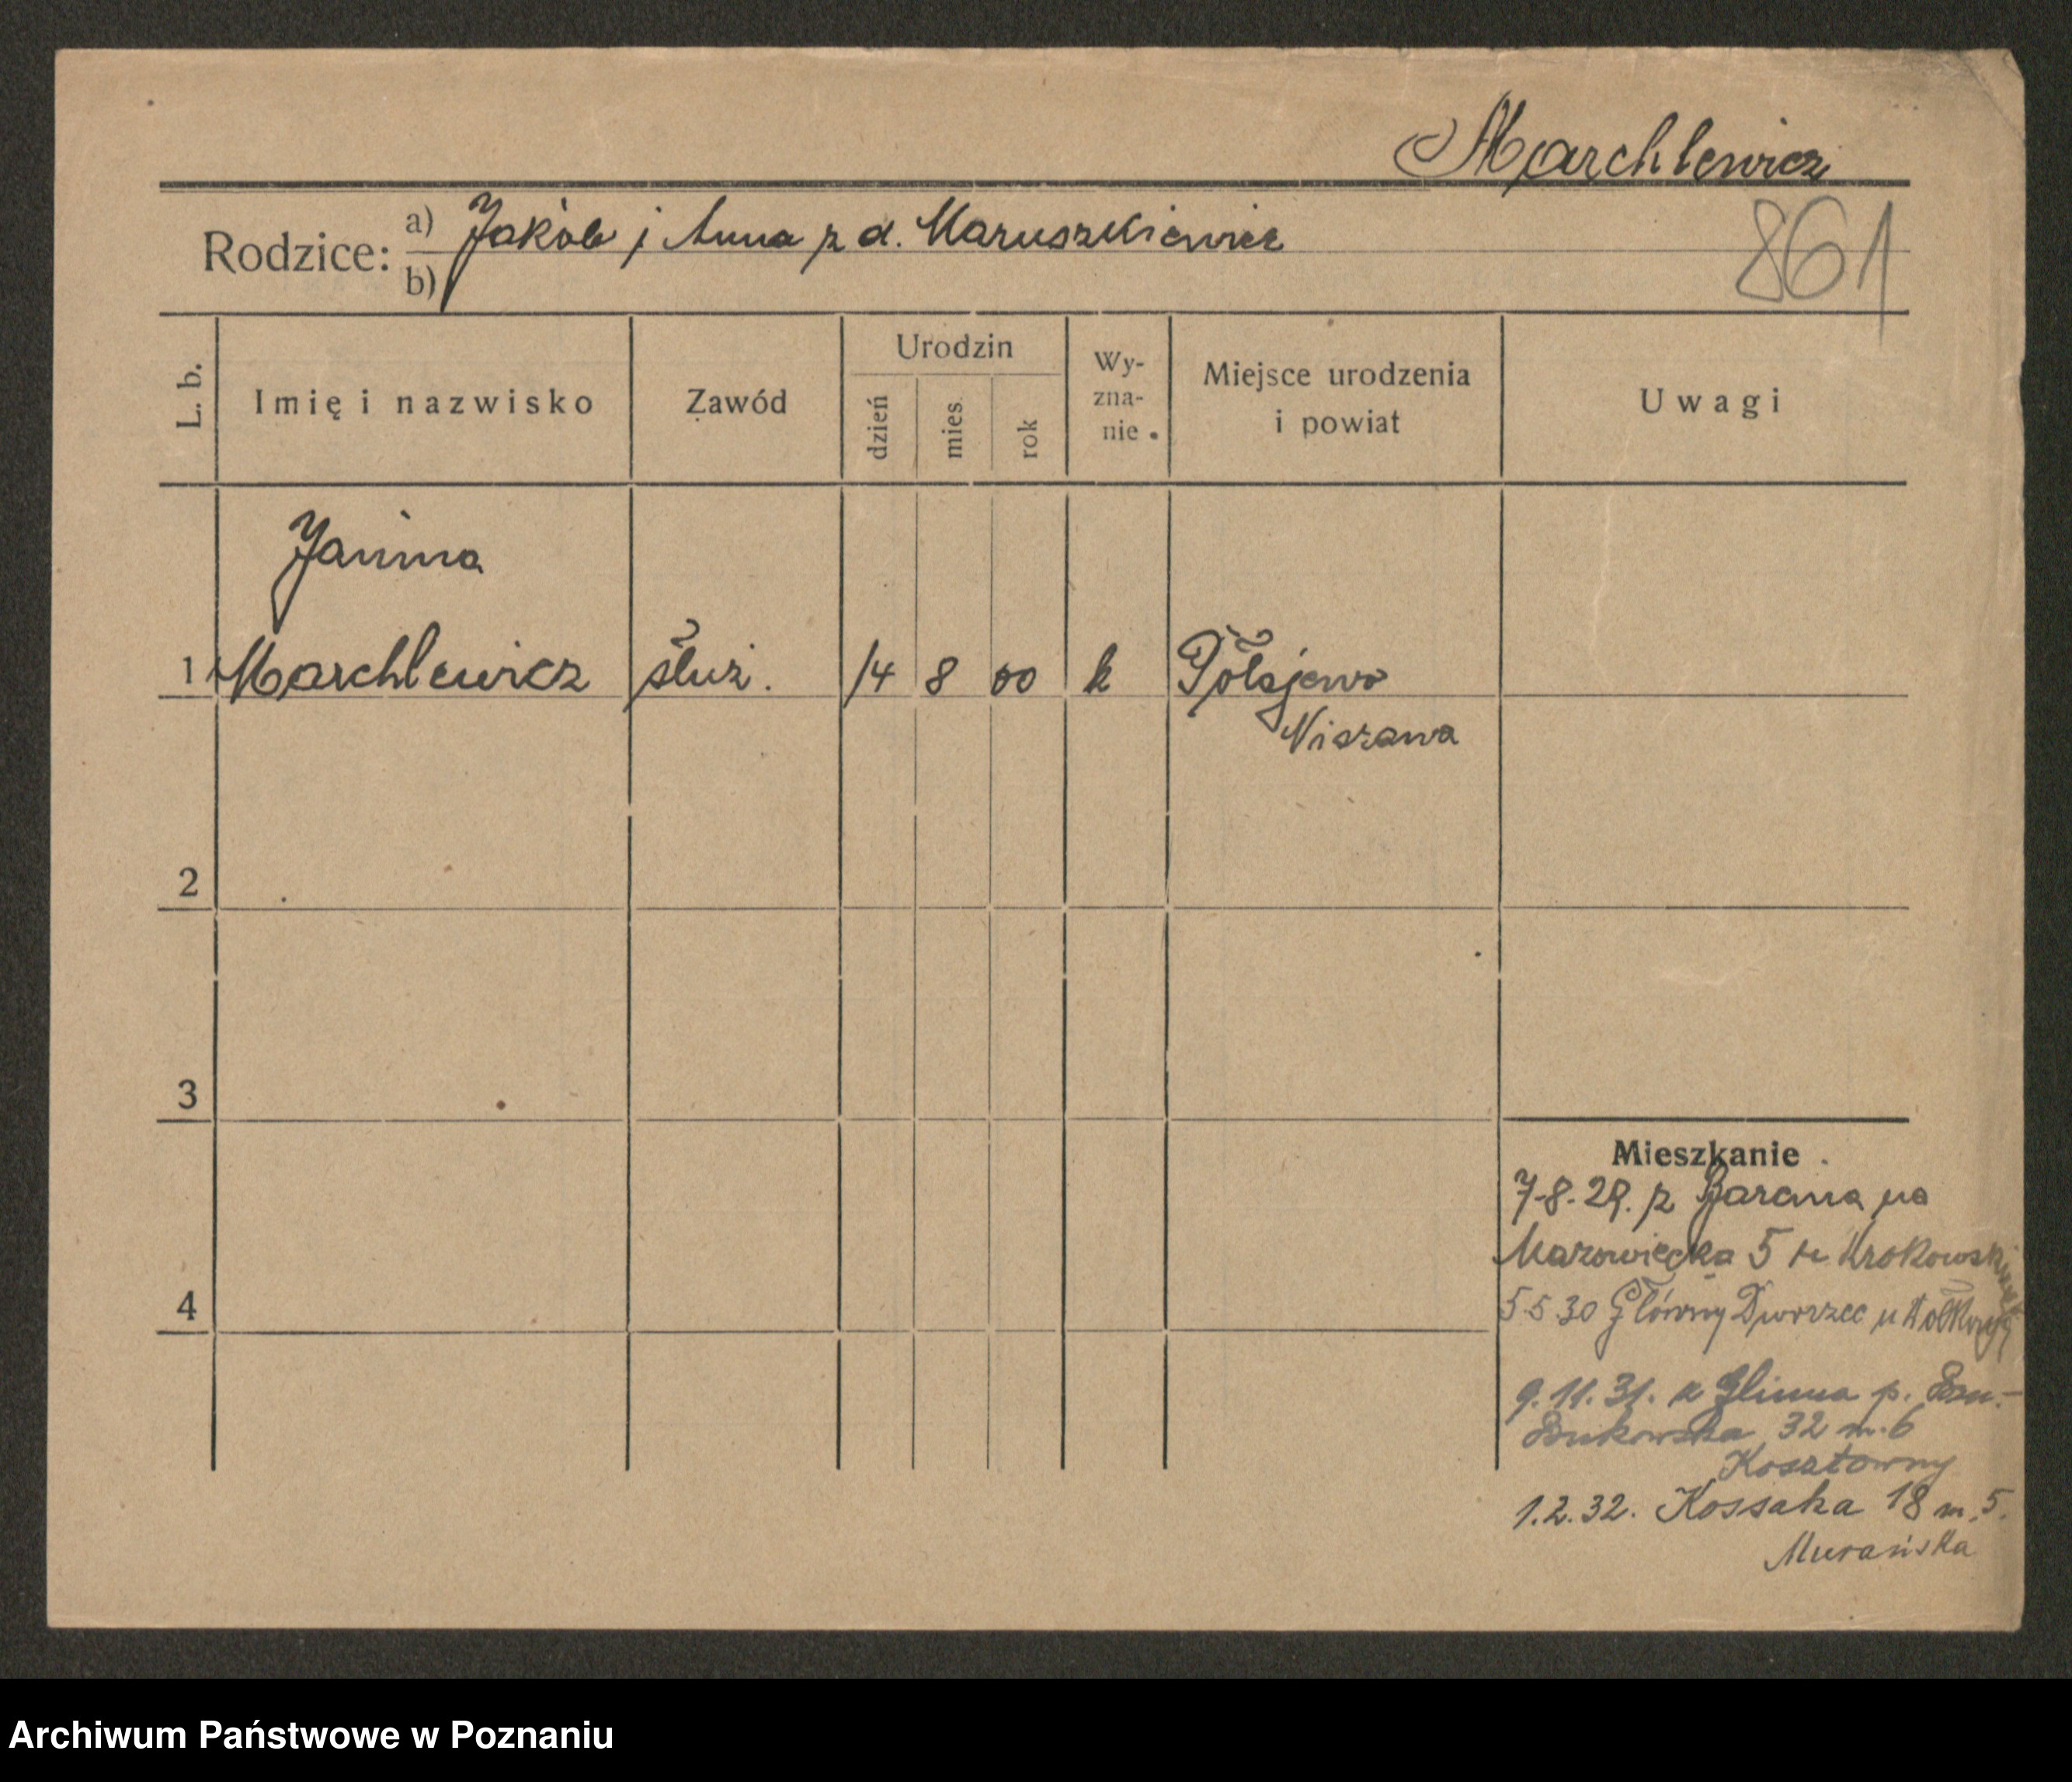 Marchlewicz
Rodzice: a) Jakób i Anna z d. Maruszkiewicz
b)
861
L. b. Imię i nazwisko Zawód Urodzin dzień mies. rok Wy-zna-nie. Miejsce urodzenia i powiat Uwagi
Janina
1 Marchlewicz służ. 14 8 00 k Połajewo
Niszawa
2
3
Mieszkanie
7-8-29. z Barana na
Mazowiecka 5 Krakowski
4
5 5 30 Główny Dworzec u
9.11.31. z Glinna p.
Bukowska 32 m. 6
Kosztowny
1.2.32. Kossaka 18 m. 5.
Murańska
Archiwum Państwowe w Poznaniu